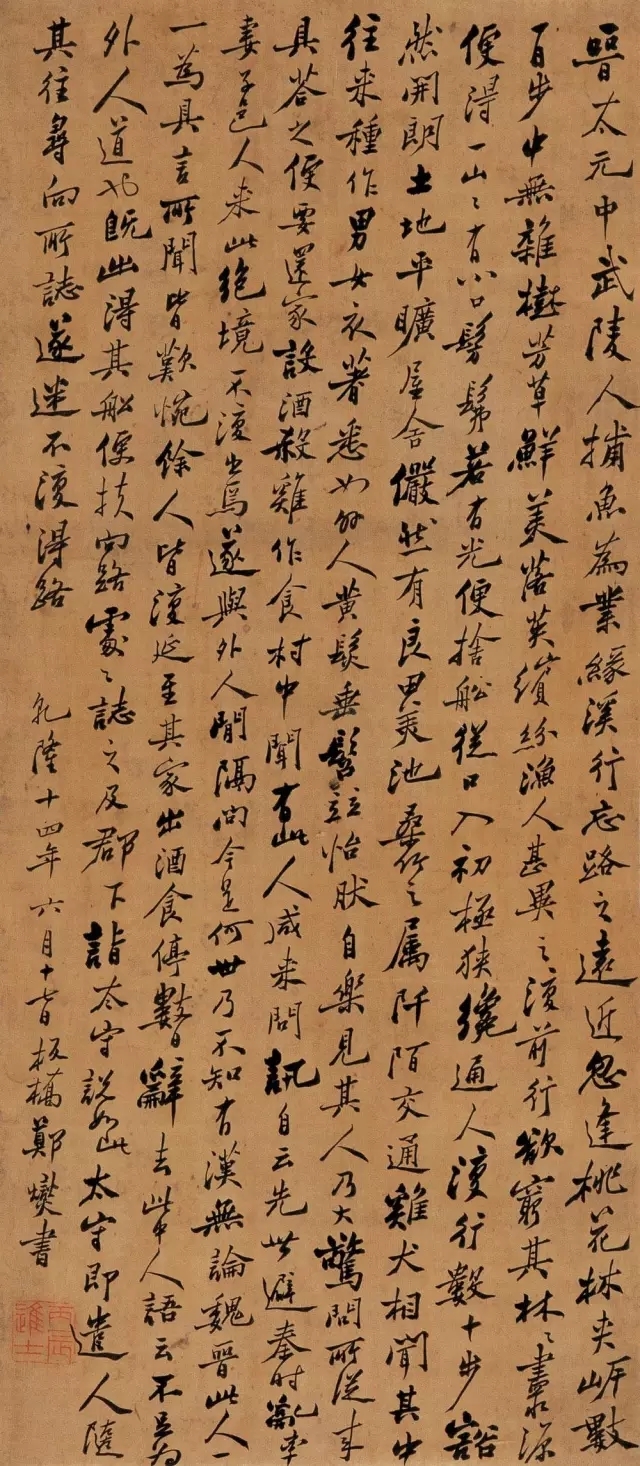 晉太元中武陵人捕魚為業緣溪行忘路之遠近忽逢桃花林夾岸數
百步中無雜樹芳草鮮美落英繽紛漁人甚異之復前行欲窮其林々盡水源
便得一山々有小口髣髴若有光便捨船從口入初極狹纔通人復行數十步豁
然開朗土地平曠屋舍儼然有良田美池桑竹之属阡陌交通雞犬相聞其中
往来種作男女衣著悉如外人黄髮垂髫竝怡然自樂見其人乃大驚問所從来
具答之便要還家設酒殺雞作食村中聞有此人咸来問訊自云先世避秦時亂率
妻子邑人来此絶境不復出焉遂與外人間隔問今是何世乃不知有漢無論魏晉此人一
一為具言所聞皆歎惋餘人皆復延至其家出酒食停數日辭去此中人語云不足為
外人道也既出得其船便扶向路處々誌之及郡下詣太守説如此太守即遣人隨
其往尋向所誌遂迷不復得路
乾隆十四年六月十
板橋鄭燮書
丙辰進士